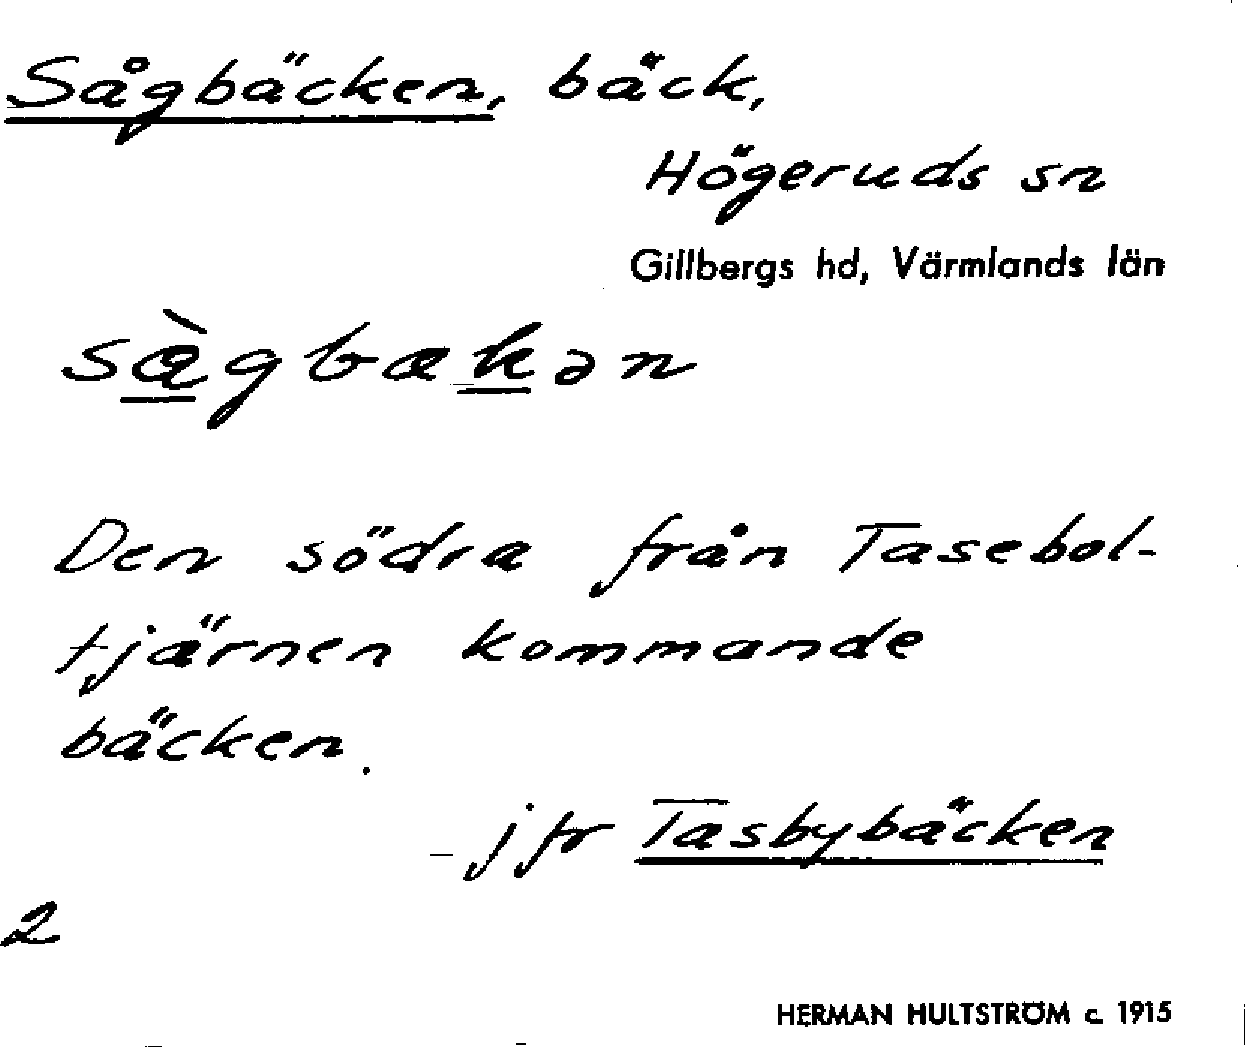 Sågbäcken, bäck,
Högeruds sn
Gillbergs hd, Värmlands län
sàgbækən
Den södra från Tasebol-
tjärnen kommande
bäcken.
- jfr Tasbybäcken
2
HERMAN HULTSTRÖM c. 1915